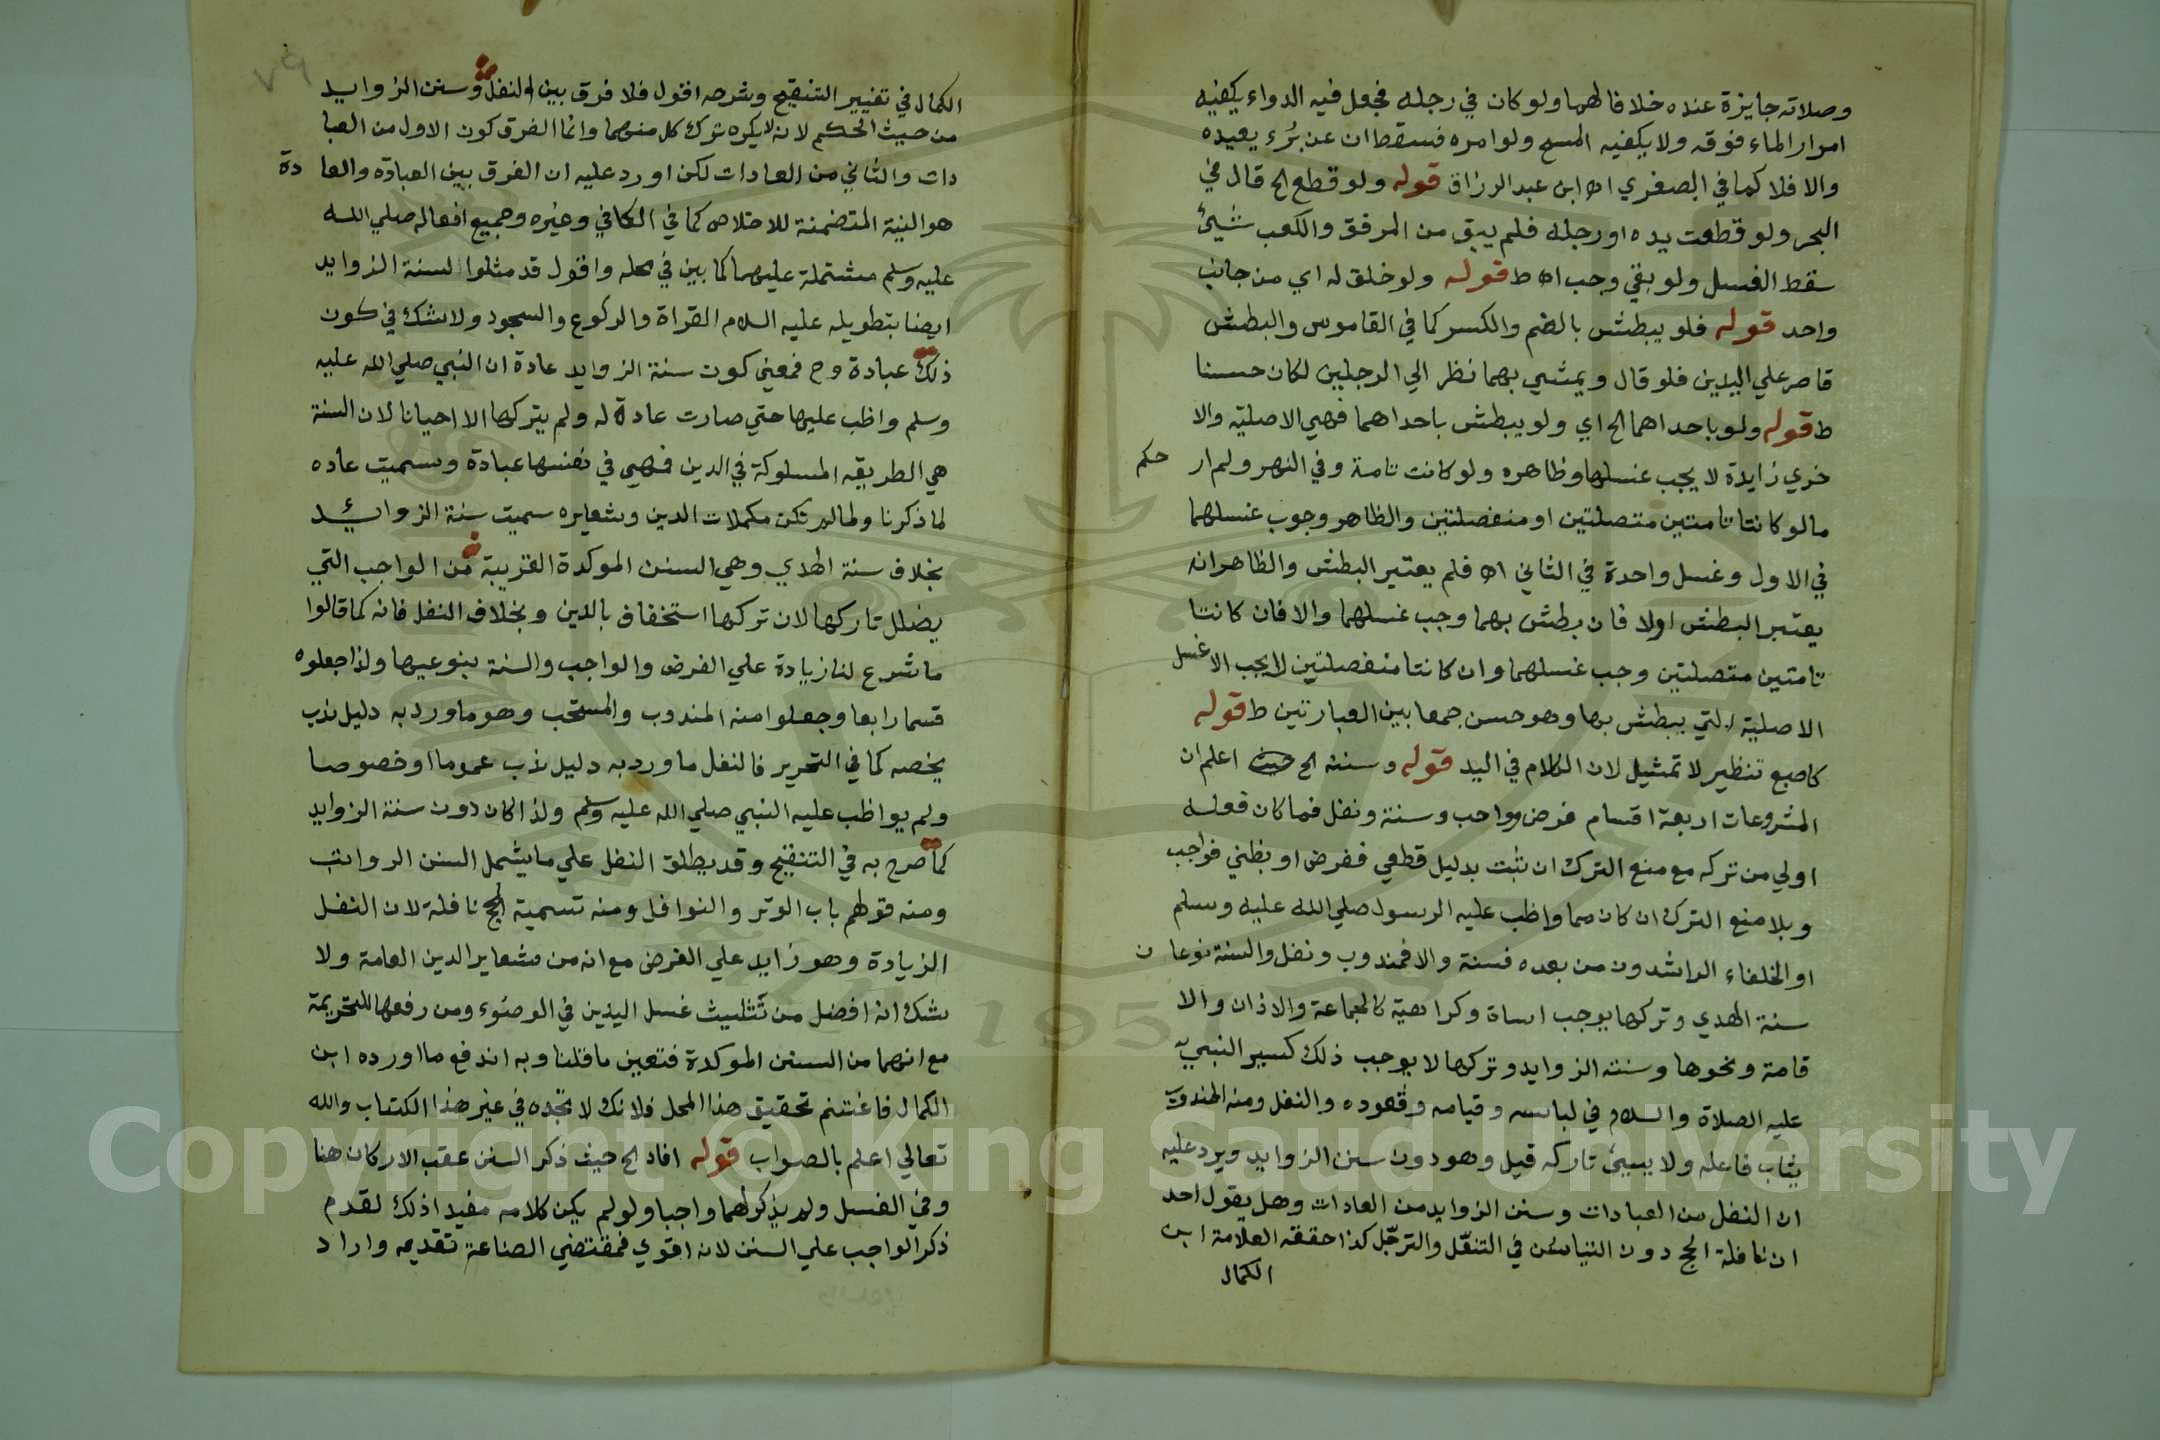 وصلاته جايزة عنده خلافا لهما ولو كان في رجله فجعل فيه الدواء يكفيه
امرار الماء فوقه ولا يكفيه المسح ولو امره فسقط ان عن بُرء يعيده
والا فلا كما في الصغري اه ابن عبد الرزاق قوله ولو قطع الخ قال في
البحر ولو قطعت يده او رجله فلم يبق من المرفق والكعب شيئ
سقط الغسل ولو بقي وجب اه ط قوله ولو خلق له اي من جانب
واحد قوله فلو يبطش بالضم والكسر كما في القاموس والبطش
قاصر علي اليدين فلو قال ويمشي بهما نظر الي الرجلين لكان حسنا
ط قوله ولو باحداهما الخ اي ولو يبطش باحداهما فهي الاصلية والا
خري زايدة لا يجب غسلها وظاهره ولو كانت تامة وفي النهر ولم ار حكم
مالو كانتا تامتين متصلتين او منفصلتين والظاهر وجوب غسلهما
في الاول وغسل واحدة في الثاني اه فلم يعتبر البطش والظاهر انه
يعتبر البطش اولا فان بطش بهما وجب غسلهما والا فان كانتا
تامتين متصلتين وجب غسلهما وان كانتا منفصلتين لا يجب الا غسل
الاصلية التي يبطش بها وهو حسن جمعا بين العبارتين ط قوله
كاصبع تنظير لا تمثيل لان الكلام في اليد قوله وسننه الخ اعلم ان
المشروعات اربعة اقسام فرض وواجب وسنة ونفل فما كان فعله
اولي من تركه مع منع الترك ان ثبت بدليل قطعي ففرض او بظني فواجب
وبلا منع الترك ان كان مما واظب عليه الرسول صلي الله عليه وسلم
او الخلفاء الراشدون من بعده فسنة والا فمندوب ونفل والسنة نوعا ن
سنة الهدي وتركها يوجب اساة وكراهية كالجماعة والاذان والا
قامة ونحوها وسنة الزوايد وتركها لا يوجب ذلك كسير النبي
عليه الصلاة والسلام في لباسه وقيامه وقعوده والنفل ومنه المندوب
يثاب فاعله ولا يسيئ تاركه قيل وهو دون سنن الزوايد ويرد عليه
ان النفل من العبادات وسنن الزوايد من العادات وهل يقول احد
ان نافلة الحج دون التيامن في التنعّل والترجّل كذا حققه العلامة ابن
الكمال
الكمال في تغيير التنقيح وشرحه اقول فلا فرق بين النفل وسنن الزوايد
من حيث الحكم لانه لا يكره ترك كل منهما وانما الفرق كون الاول من العبا
دات والثاني من العادات لكن اورد عليه ان الفرق بين العبادة والعا دة
هو النية المتضمنة للاخلاص كما في الكافي وغيره وجميع افعاله صلي الله
عليه وسلم مشتملة عليها كما بين في محله واقول قد مثلوا لسنة الزوايد
ايضا بتطويله عليه السلام القراة والركوع والسجود ولا شك في كون
ذلك عبادة وح فمعني كون سنة الزوايد عادة ان النبي صلي الله عليه
وسلم واظب عليها حتي صارت عادة له ولم يتركها الا احيانا لان السنة
هي الطريقه المسلوكة في الدين فهي في نفسها عبادة وسميت عاده
لما ذكرنا ولما لم تكن مكملات الدين وشعايره سميت سنة الزوائد
بخلاف سنة الهدي وهي السنن الموكدة القريبة من الواجب التي
يضلل تاركها لان تركها استخفاف بالدين وبخلاف النفل فانه كما قالوا
ما شرع لنا زيادة علي الفرض والواجب والسنة بنوعيها ولذا جعلوه
قسما رابعا وجعلوا منه المندوب والمستحب وهو ما ورد به دليل ندب
يخصه كما في التحرير فالنفل ما ورد به دليل ندب عموما او خصوصا
ولم يواظب عليه النبي صلي الله عليه وسلم ولذا كان دون سنة الزوايد
كما صرح به في التنقيح وقد يطلق النفل علي ما يشمل السنن الرواتب
ومنه قولهم باب الوتر والنوافل ومنه تسمية الحج نافلة لان النفل
الزيادة وهو زايد علي الفرض مع انه من شعاير الدين العامة ولا
شك انه افضل من تثليث غسل اليدين في الوضوء ومن رفعها للتحريمة
مع انهما من السنن الموكدة فتعين ما قلنا وبه اندفع ما اورده ابن
الكمال فاغتنم تحقيق هذا المحل فلانك لا تجده في غير هذا الكتاب والله
تعالي اعلم بالصواب قوله افاد الخ حيث ذكر السنن عقب الاركان هنا
وفي الغسل ولم يذكر لهما واجبا ولو لم يكن كلامه مفيدا ذلك لقدم
ذكر الواجب علي السنن لانه اقوي فمقتضي الصناعة تقديمه واراد
Copyright © King Saud University
1957